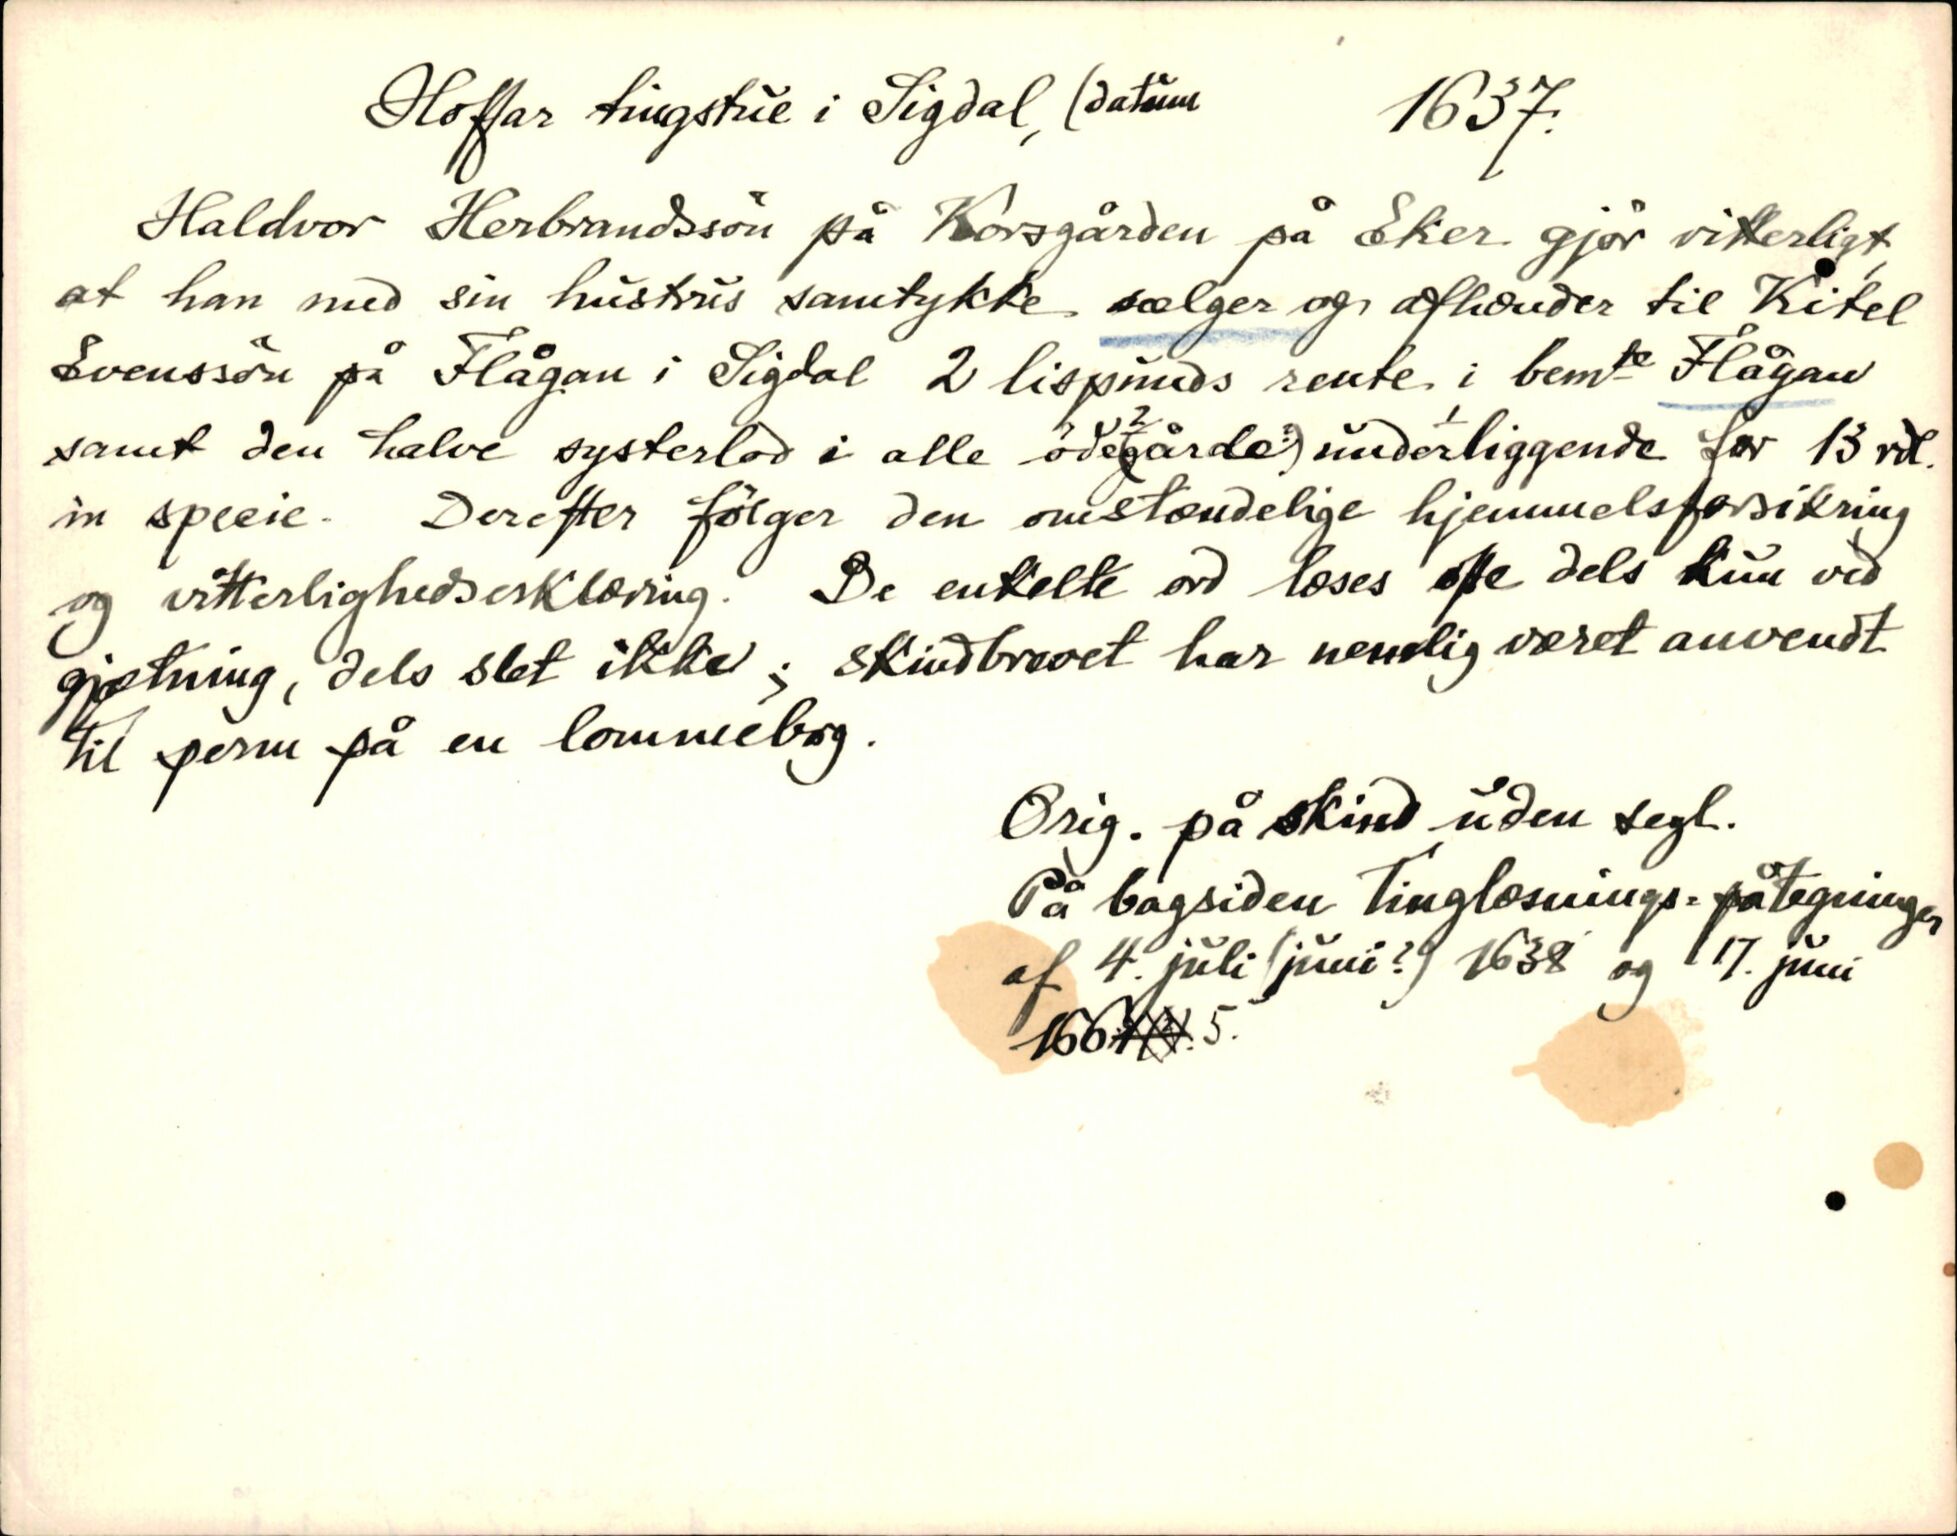 Hoffar tingstue i Sigdal, (datum 1637.
Haldvor Herbrandssön på Korsgården på Eker gjör vitterligt,
at han med sin hustrus samtykke sælger og afhænder til Kitel
Svenssön på Flågan i Sigdal 2 lispunds rente i bemte Flågan
samt den halve systerlod i alle öde(gårde?) underliggende for 13 rdl.
in specie. Derefter fölger den omstændelige hjemmelsforsikring
og vitterlighedserklæring. De enkelte ord læses ofte dels kun ved
gjætning, dels slet ikke; skindbrevet har nemlig været anvendt
til perm på en lommebog.
Orig. på skind uden segl.
På bagsiden tinglæsnings-påtegninger
af 4. juli (juni?) 1638 og 17. juni
166 5.